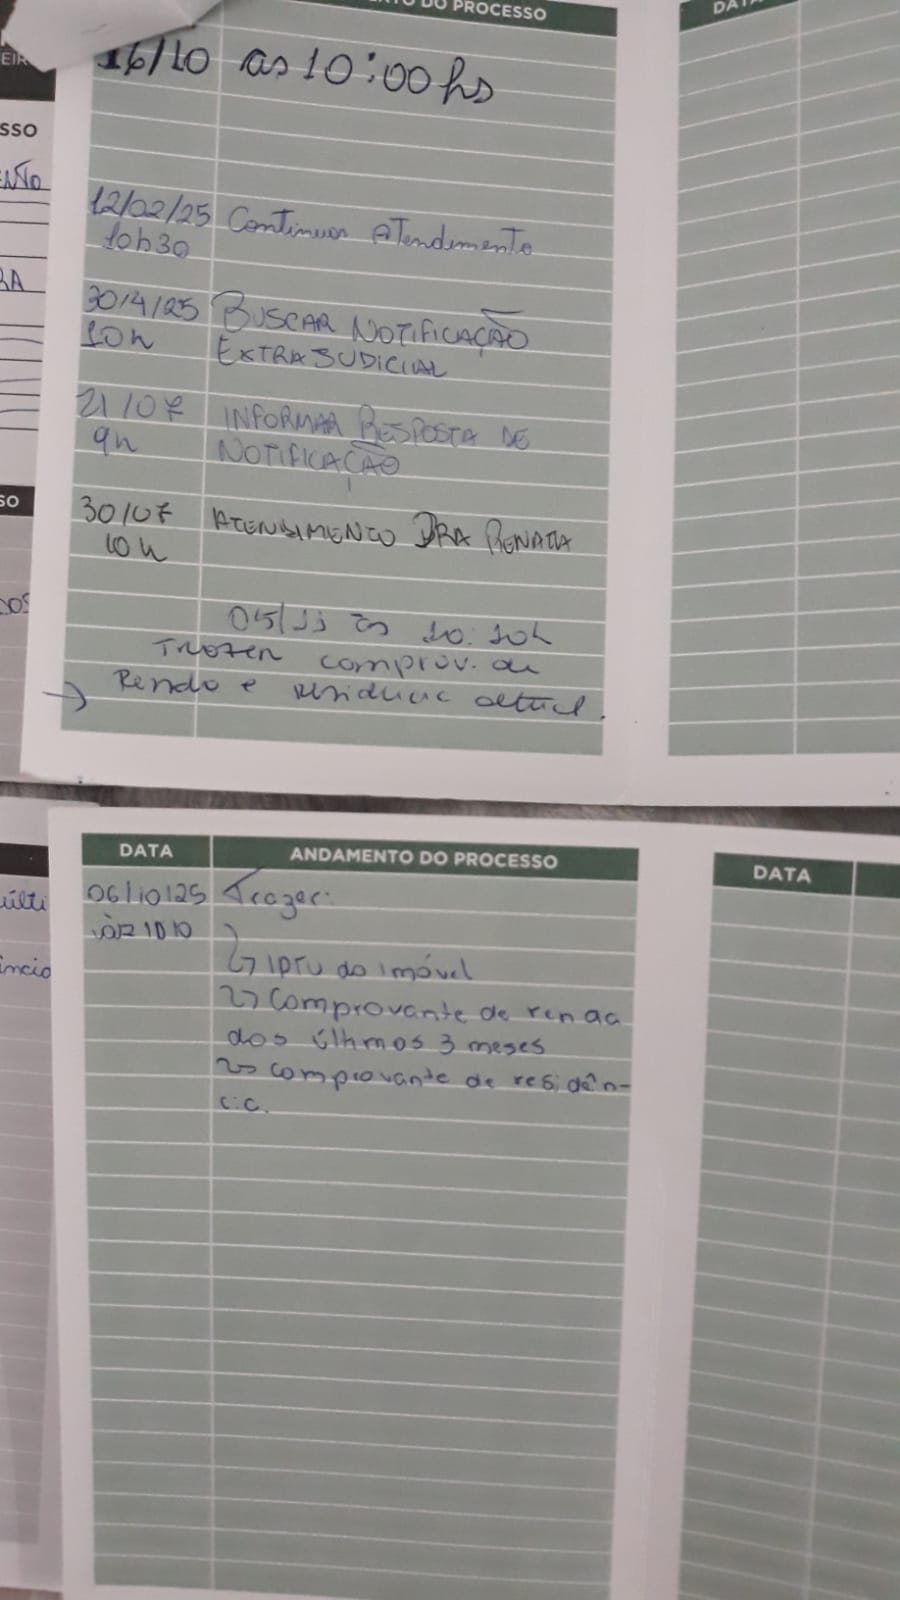 DO PROCESSO
DATA
16/10 as 10:00hs
SSO
12/02/25 Continuar Atendimento
10h30
30/4/25 BUSCAR NOTIFICAÇÃO
10h EXTRAJUDICIAL
21/07 INFORMAR RESPOSTA DE
9h NOTIFICAÇÃO
30/07 ATENDIMENTO DRA RENATA
10h
05/11 as 10:10h
Trazer comprov. de
→ Renda e residencia atual.
DATA ANDAMENTO DO PROCESSO
DATA
06/10/25 Trazer:
às 1010
↳ IPTU do imóvel
↳ comprovante de renda
dos últimos 3 meses
↳ comprovante de residên-
cia.